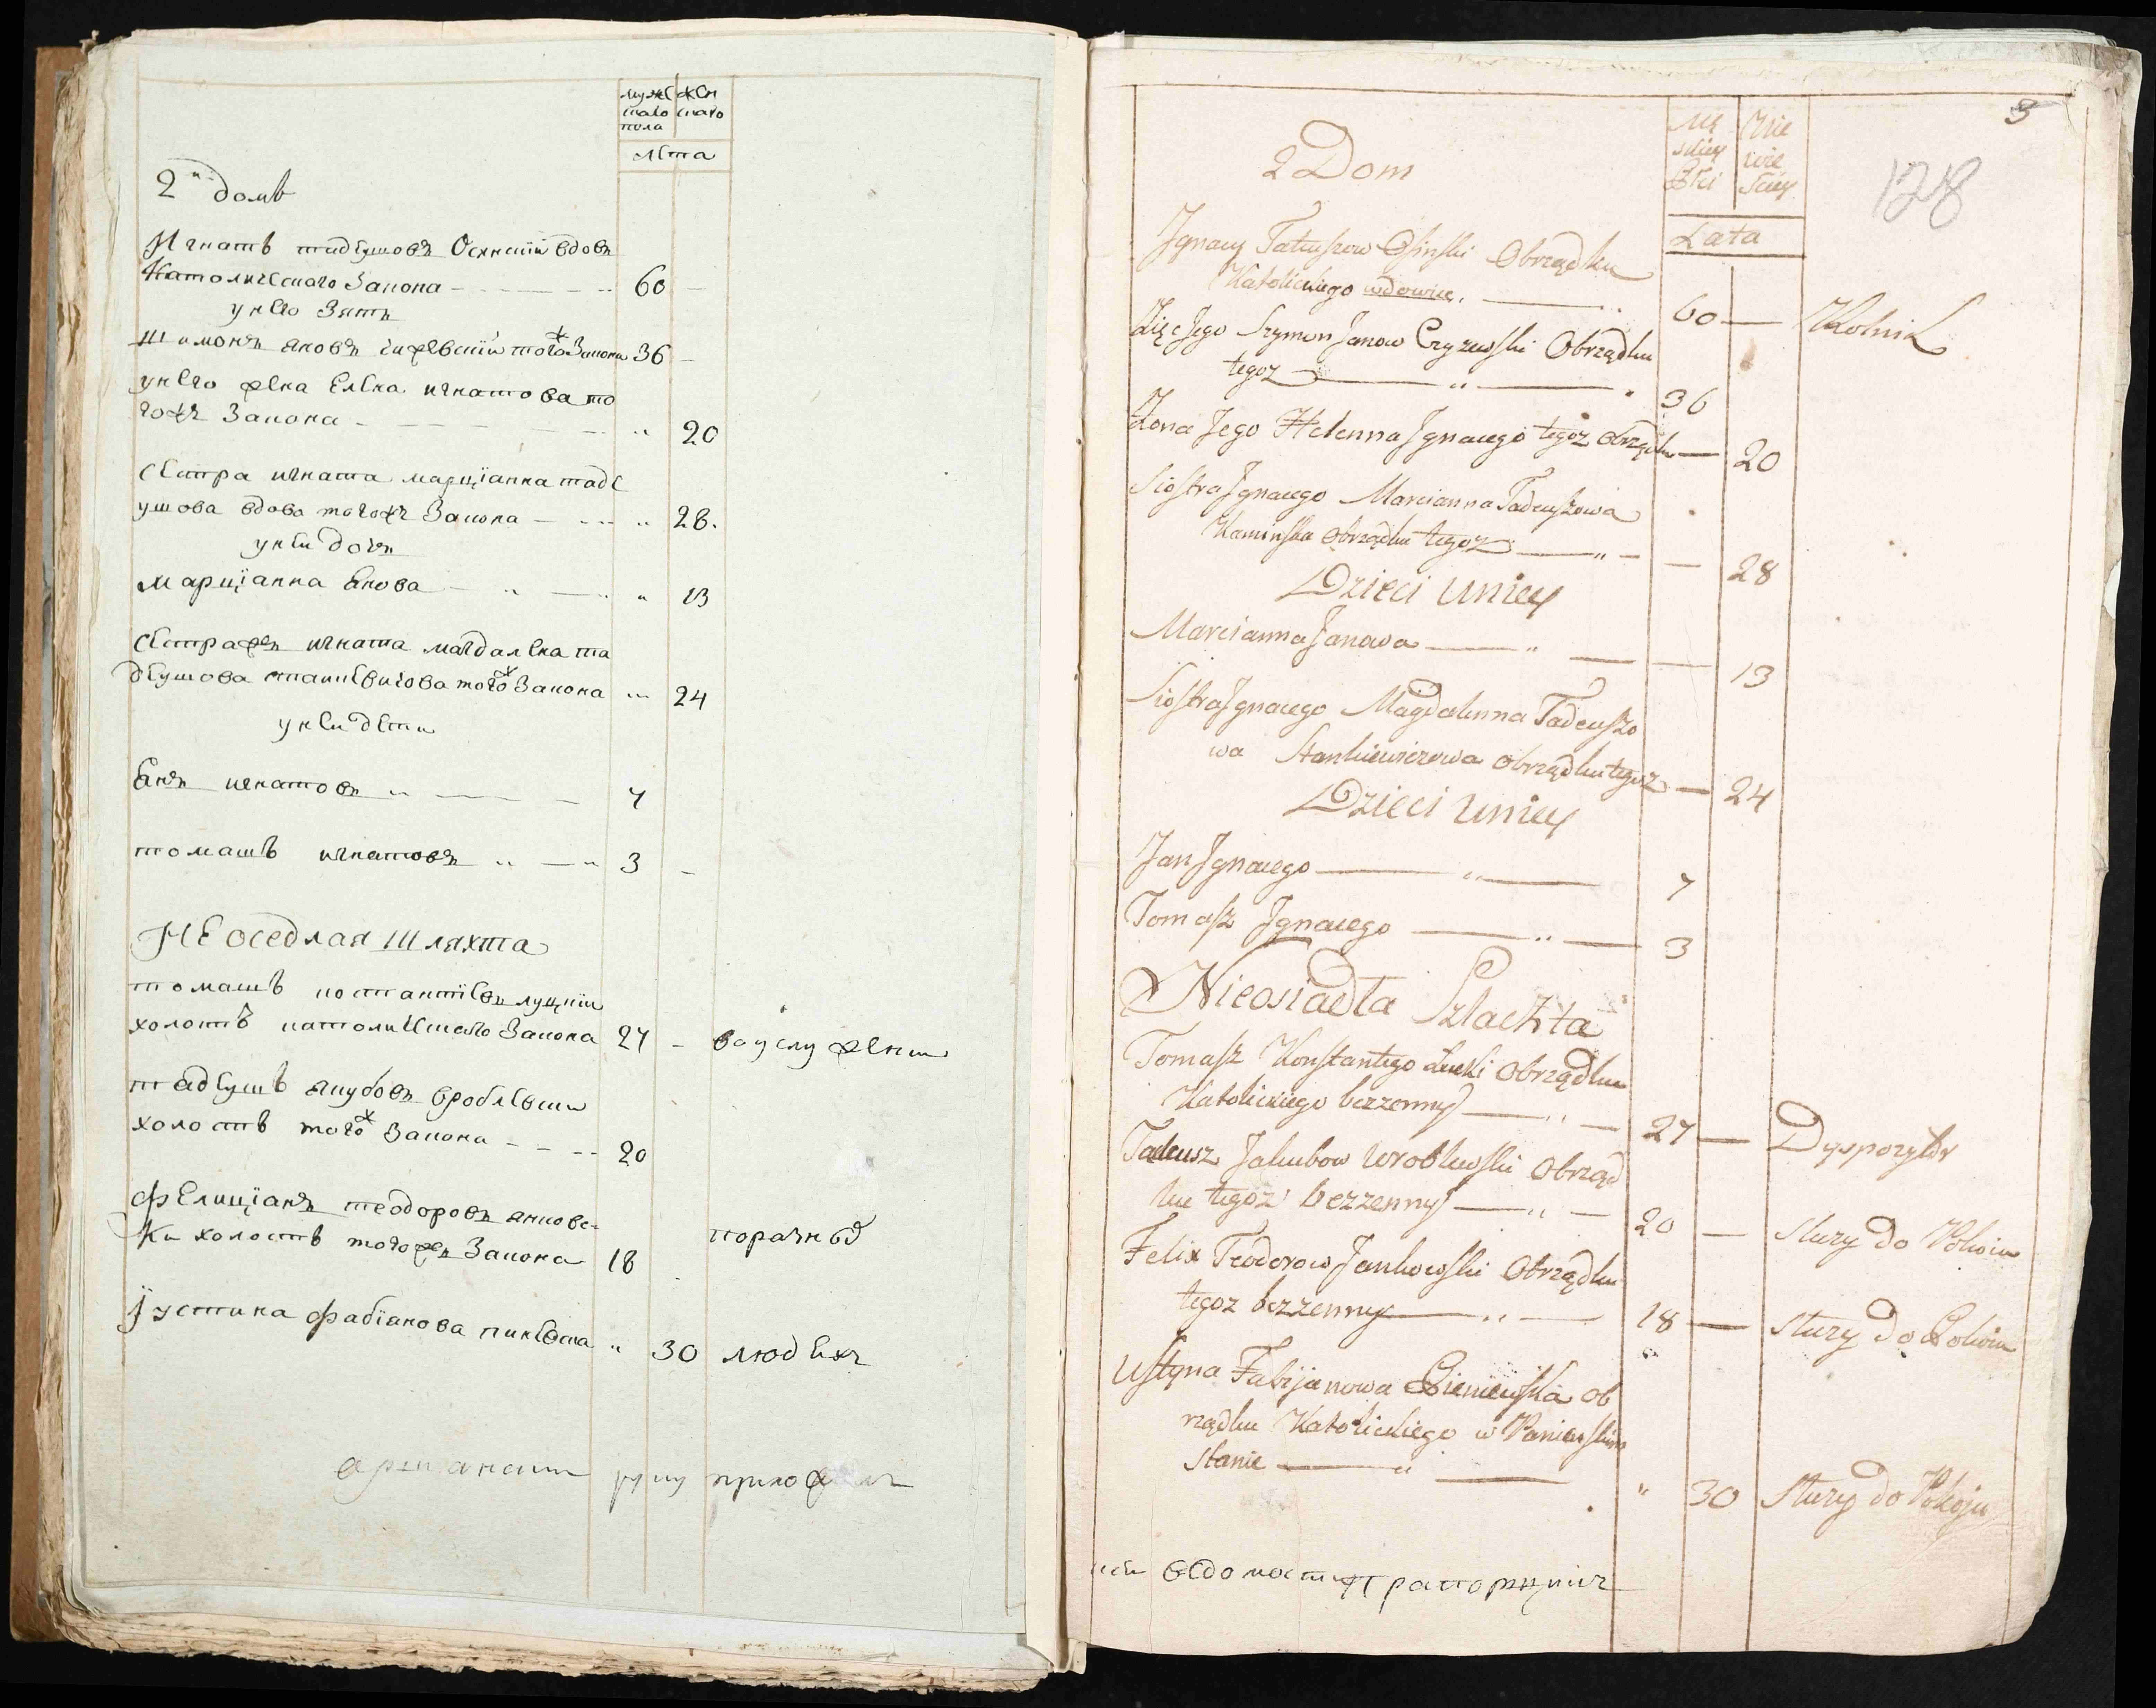 мужс жен
каго скаго
пола
лета
2й домъ
Игнатъ тадеушовъ Осинскій вдовъ
Католическаго Закона 60
у него Зять
Шимонъ яновъ тогож Закона 36
у него жена Елена игнатова то
гожъ Закона 20
сестра игната марціанна таде
ушова вдова тогожъ Закона 28.
у ней дочь
марціанна Янова 13
сестражъ игната магдалена та
деушова станкевичова тогож Закона 24
у ней дети
Янъ игнатовъ 7
томашъ игнатовъ 3
НЕоседлая Шляхта
томашъ костантіевъ луцкій
холостъ католическаго Закона 27 - во услужении
тадеушъ якубовъ вроблевски
холостъ тогож Закона 20
фЕлиціанъ теодоровъ янковс-
ки холостъ тогожъ Закона 18 порачнъй
Їустина фабіанова 30 людехъ
3
128
2 Dom
Mę skiey Płci
Nie wie sciey
Lata
Jgnacy Tatuszow Osinski Obrządku
Katolickiego wdowiec. 60 — Rolnik
Zięc Jego Szymon Janow Czyzewski Obrządku
tegoz 36
Zona Jego Helenna Jgnacego tegoz obrządku — 20
Siostra Jgnacego Marcianna Tadeuszowa
Kaminska obrządku tegoz — 28
Dzieci Uniey
Marcianna Janowa — 13
Siostra Jgnacego Magdalenna Tadeuszo
wa Stankiewiczowa obrządku tegoz — 24
Dzieci Uniey
Jan Jgnacego — 7
Tomasz Jgnacego — 3
Nieosiadła Szlachta
Tomasz Konstantego Łucki Obrządku
Katolickiego bezzenny — 27 — Dyspozytor
Tadeusz Jakubow Wroblewski Obrząd
ku tegoz bezzenny — 20 — słuzy do Pokoiu
Felix Teodorow Jankowski Obrządku
tegoz bezzenny — 18 — słuzy do Pokoiu
Ustyna Fabijanowa Pieniewska ob
rządku Katolickiego w Panienskim
stanie — " 30 Słuzy do Pokoju